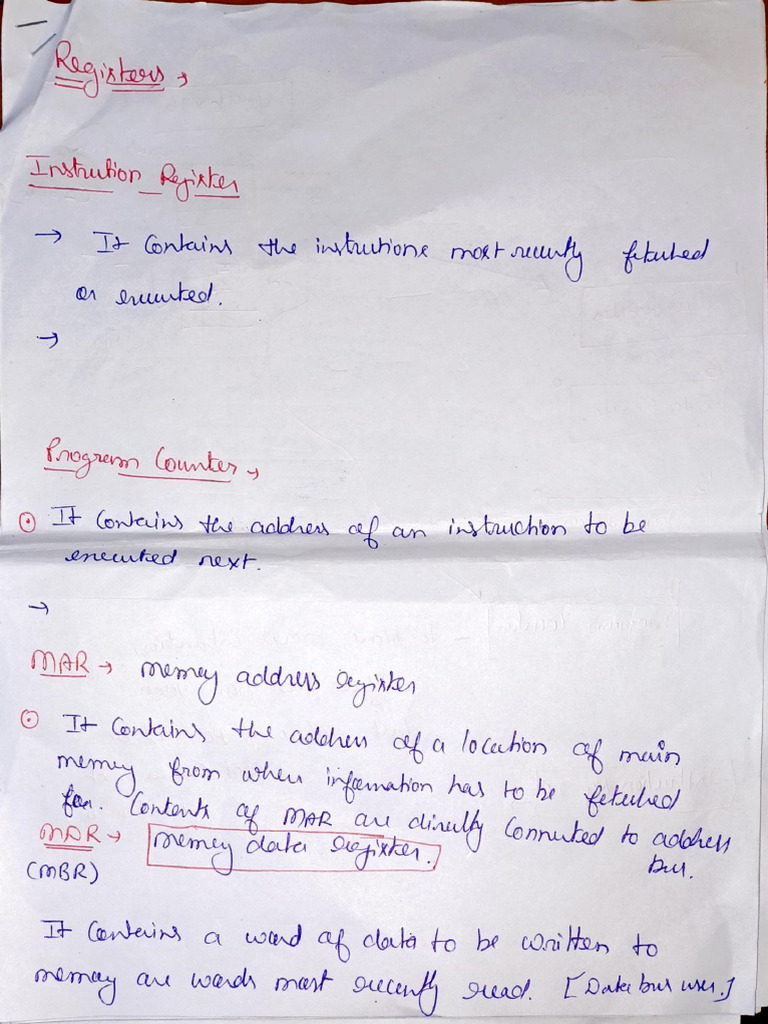 Registers →
Instrution Register
→ It Contains the instrutions most recently fetched
or executed.
→
Program Counter →
⊙ It Contains the address of an instruction to be
executed next.
→
MAR → memory address register
⊙ It Contains the address of a location of main
memory from when information has to be fetched
Contents of MAR are directly Connected to address
bus.
MDR → memory data register.
(MBR)
It Contains a word of data to be written to
memory are words most recently read. [Data bus user.]